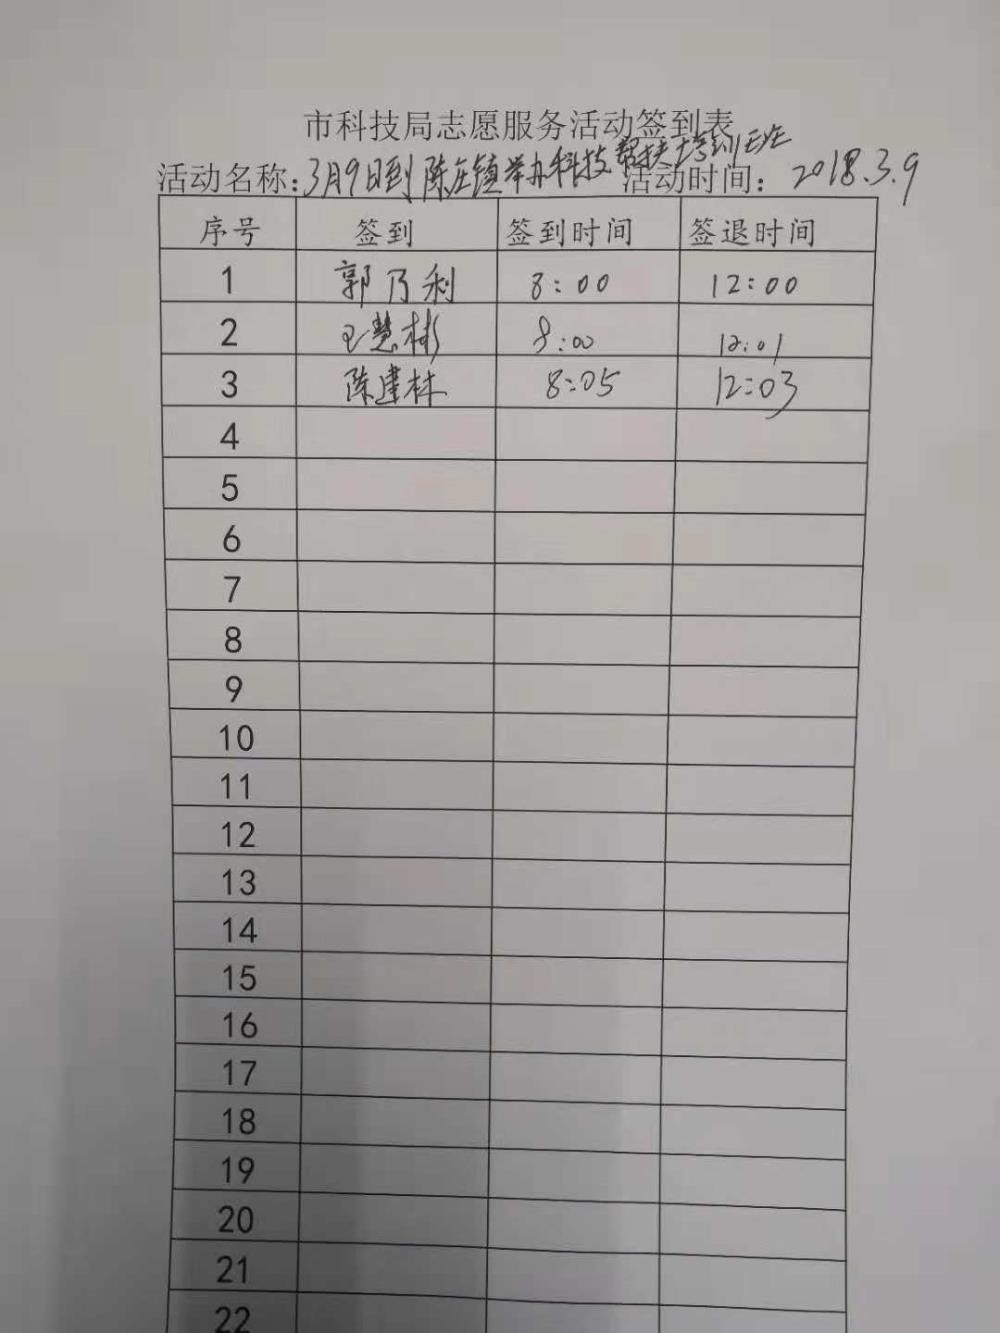 市科技局志愿服务活动签到表
活动名称：3月9日到陈庄镇举办科技帮扶培训班 活动时间：2018.3.9
序号 签到 签到时间 签退时间
1 郭乃利 8:00 12:00
2 王慧彬 8:00 12:01
3 陈建林 8:05 12:03
4
5
6
7
8
9
10
11
12
13
14
15
16
17
18
19
20
21
22